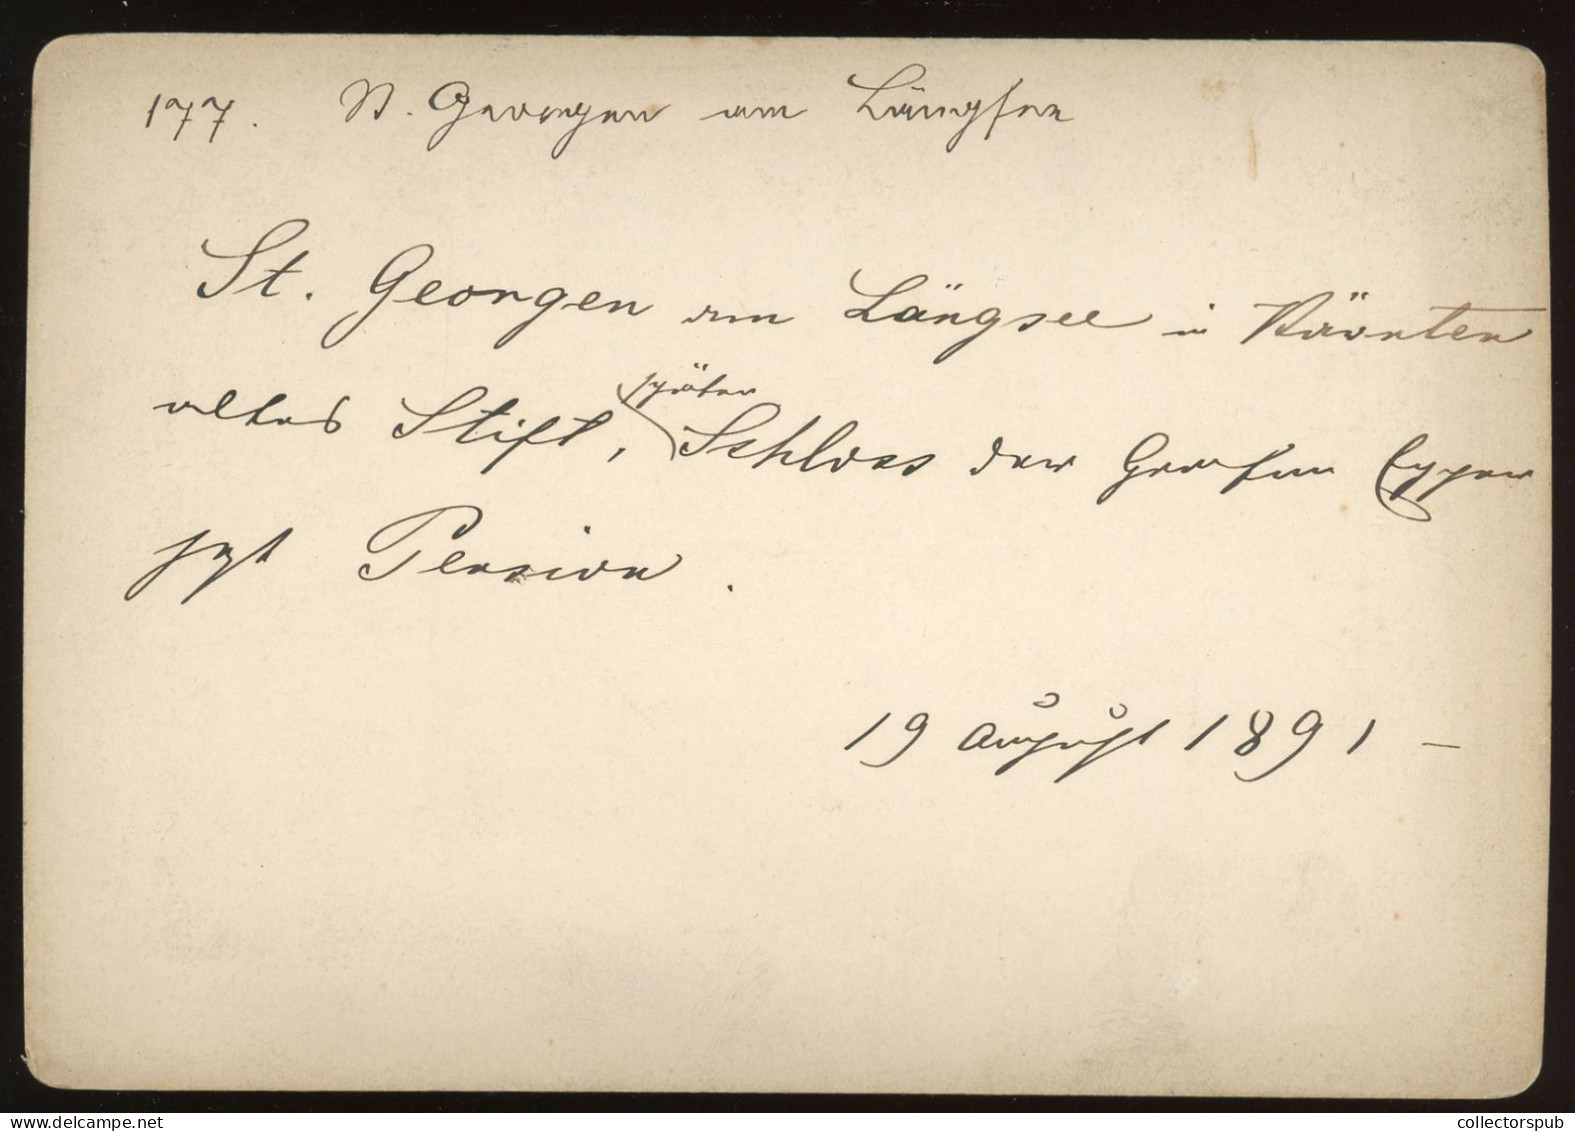 177. St. Georgen am Längsee
St. Georgen am Längsee in Kärnten
später
altes Stift, Schloss der Grafen Egger
jezt Pension.
19 August 1891 –
collectorspub